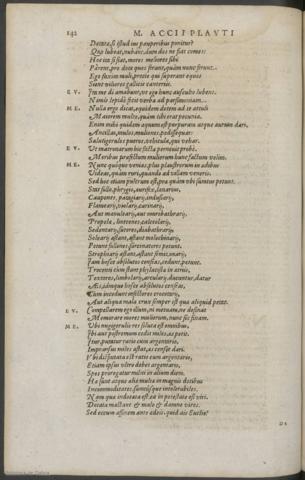 142 M. ACCII PLAVTI
Dotata, si istud ius pauperibus ponitur?
Quo lubeat, nubant, dum dos ne fiat comes:
Hoc ita si fiat, mores meliores sibi
Parent, pro dote quos ferant, quàm nunc ferunt.
Ego faxim muli, pretio qui superant equos
Sient viliores gallicis cantheriis.
EV. Ita me di amabunt, ut ego hunc ausculto lubens.
Nimis lepidè fecit verba ad parsimoniam.
ME. Nulla ergo dicat, equidem dotem ad te attuli
Maiorem multo, quàm tibi erat pecunia.
Enim mihi quidem aequum est purpuram atque aurum dari,
Ancillas, mulos, muliones, pedissequas:
Salutigerulos pueros, vehicula, qui vehar.
EV. Ut matronarum hic facta pernovit probè.
Moribus praefectum mulierum hunc factum velim.
ME. Nunc quoquo venias, plus plaustrorum in aedibus
Videas, quàm ruri, quando ad villam veneris.
Sed hoc etiam pulcrum est, praequàm ubi sumtus petunt.
Stat fullo, phrygio, aurifex, lanarius,
Caupones, patagiarii, indusiarii,
Flamearii, violarii, carinarii,
Aut manulearii, aut
Propolae, linteones, calceolarii,
Sedentarii, sutores, diabathrarii,
Solearii astant, astant molochinarii,
Petunt fullones, sarcinatores petunt.
Strophiarii astant, astant
Iam hosce absolutos censeas, cedunt, petunt
Trecenti cùm stant phylacistae in atriis,
Textores, limbolarii, arcularii, ducuntur, datur
Aes, iam hosce absolutos censeas,
Cùm incedunt infectores crocotarii,
Aut aliqua mala crux semper est quae aliquid petat.
EV. Compellarem ego illum, ni metuam, ne desinat
Memorare mores mulierum, nunc sic sinam.
ME. Ubi nugigerulis res soluta est omnibus,
Ibi aut postremum cedit miles, aes petit.
Itur, putatur ratio cum argentario,
Impransus miles astat, aes censet dari.
Ubi disputata est ratio cum argentario,
Etiam ipsus ultro debet argentario,
Spes prorogatur militi in alium diem.
Haec sunt atque aliae multae in magnis dotibus
Incommoditates sumtúsque intolerabiles.
Nam quae indotata est, ea in potestate est viri.
Dotatae mactant & malo & damno viros.
Sed eccum affinem ante aedeis. quid ais Euclio?